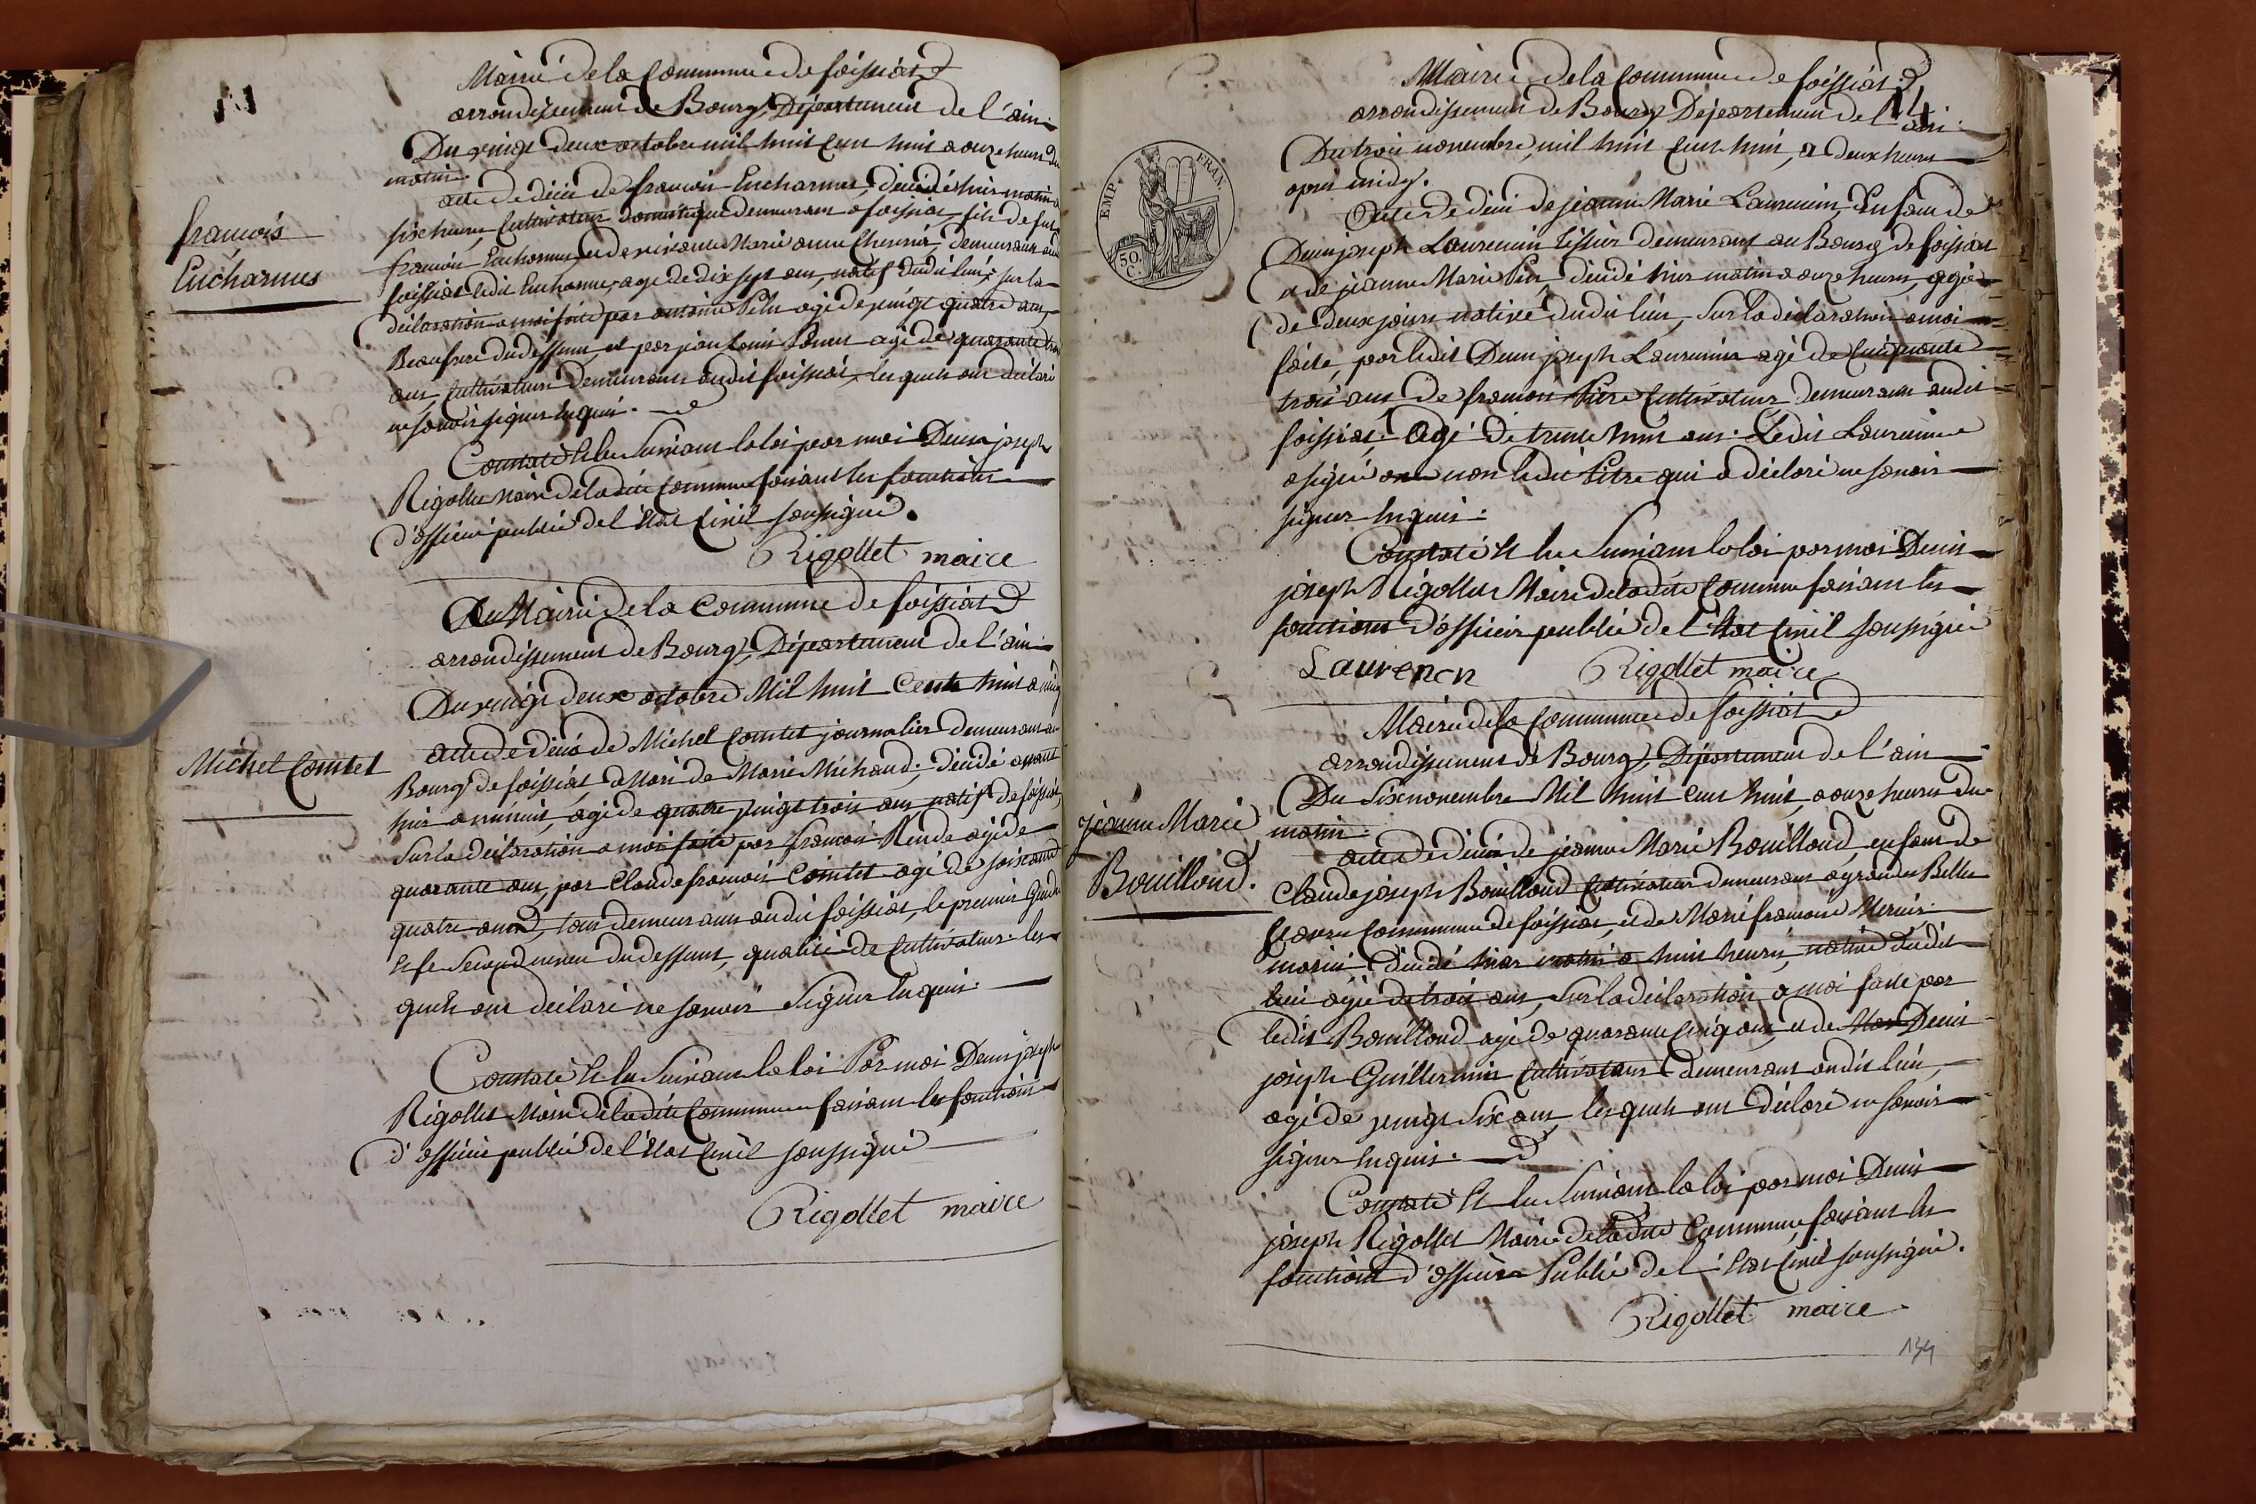 Mairie de la Commune de foissiat
arrondissement de Bourg, Département de l'ain.
Du vingt deux octobre mil huit Cent huit a onze heures du
matin.
acte de décès de francois Eucharnus, décédé hier matin a
six heures, Cultivateur domestique demeurant a foissiat fils de feu
francois Eucharnus, et de vivante Marie anne Chenviat, demeurant audit
foissiat ledit Eucharnus, agé de dix sept ans, natif dudit lieu, sur la
déclaration a moi faite par antoine Pelu agé de vingt quatre ans,
Beaufrere du deffunt, et par jean Louis agé de quarante trois
ans, Cultivateurs demeurants audit foissiat, lesquels ont déclaré
ne savoir signer Enquis.
Constaté Et lu Suivant la loi par moi Denis joseph
Rigollet Maire de la dite Commune faisant les fonctions
d'officier public de l'Etat Civil soussigné.
Rigollet maire
francois
Eucharnus
Mairie de la Commune de foissiat
arrondissement de Bourg, Département de l'ain.
Du vingt deux octobre Mil huit Cent huit a midy
acte de décès de Michel Comtet journalier demeurant au
Bourg de foissiat, Mari de Marie Michaud, décédé avant
hier a minuit, agé de quatre vingt trois ans, natif de foissiat,
Sur la déclaration a moi faite par francois Rende agé de
quarante ans, par Claude francois Comtet agé de soixante
quatre ans, tous demeurants audit foissiat, le premier Gendre
Et le Second neveu du deffunt, qualité de Cultivateurs. les
quels ont déclaré ne savoir Signer Enquis.
Constaté Et lu Suivant la loi Par moi Denis joseph
Rigollet Maire de la dite Commune faisant les fonctions
d'officier public de l'Etat Civil soussigné
Rigollet maire
Michel Comtet
Mairie de la Commune de foissiat
14
arrondissement de Bourg Département de l'ain.
Du trois novembre, mil huit Cent huit, a deux heures
apres midy.
EMP. FRAN.
50.
C.
Acte de décès de jeanne Marie Laurencin, Enfant de
Denis joseph Laurencin Tissier demeurant au Bourg de foissiat
et de jeanne Marie décédé hier matin a onze heures, agée
de deux jours native dudit lieu, Sur la déclaration a moi
faite, par ledit Denis joseph Laurencin agé de Cinquante
trois ans De francois Pitre Cultivateur demeurant audit
foissiat, Agé de trente huit ans. Ledit Laurencin
a signé non ledit Pitre qui a déclaré ne savoir
signer Enquis.
Constaté Et lu Suivant la loi par moi Denis
joseph Rigollet Maire de la dite Commune faisant les
fonctions d'officier public de l'Etat Civil soussigné
Laurencn Rigollet maire
Mairie de la Commune de foissiat
arrondissement de Bourg, Département de l'ain
Du Six novembre Mil huit Cent huit, a onze heures du
matin.
acte de décès de jeanne Marie Bouilloud, enfant de
Claude joseph Bouilloud Cultivateur demeurant a grandes Belle
Commune de foissiat, et de Marie francoise Mercier
mariés décédé hier matin a huit heures, native dudit
lieu agée de trois ans, Sur la déclaration a moi faite par
ledit Bouilloud agé de quarante Cinq ans, et de Denis
joseph Guillermin Cultivateur demeurant audit lieu,
agé de vingt Six ans, lesquels ont déclaré ne savoir
signer Enquis.
Constaté Et lu Suivant la loi par moi Denis
joseph Rigollet Maire de la dite Commune, faisant les
fonctions d'officier Public de l'Etat Civil soussigné.
Rigollet maire
jeanne Marie
Bouilloud.
134